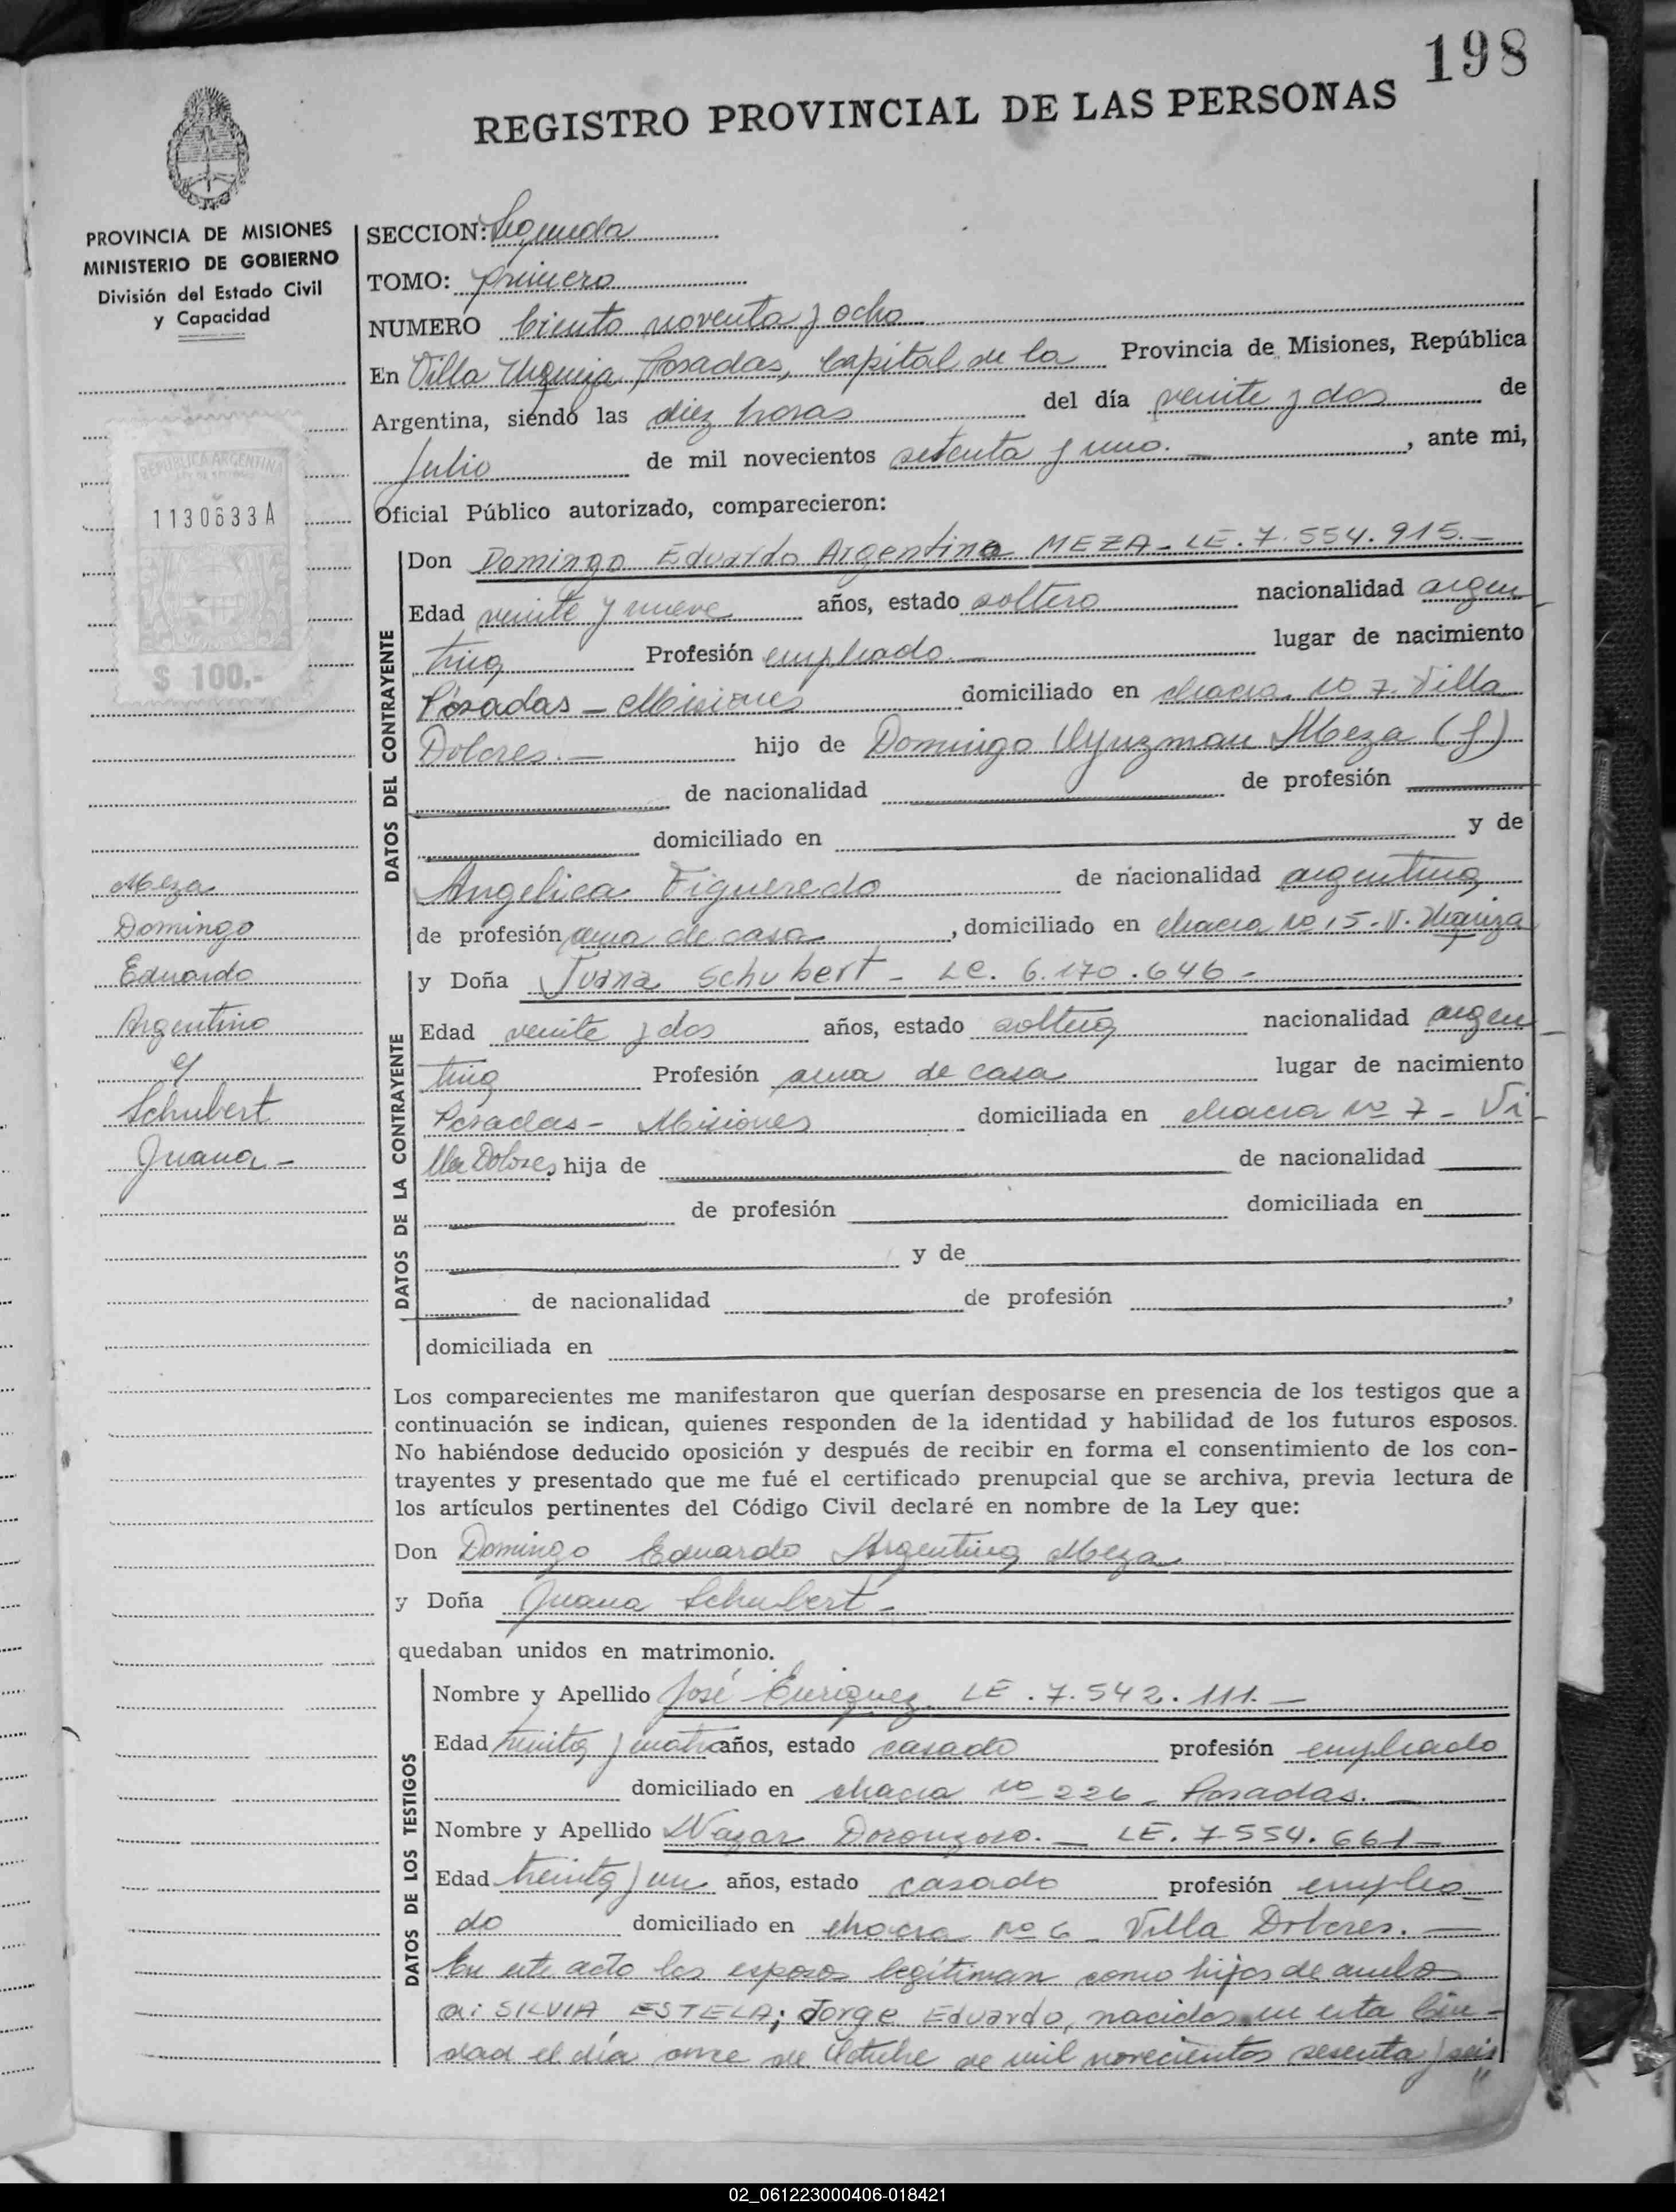 198
REGISTRO PROVINCIAL DE LAS PERSONAS
PROVINCIA DE MISIONES
MINISTERIO DE GOBIERNO
División del Estado Civil
y Capacidad
REPUBLICA ARGENTINA
1130633A
$ 100.-
Meza
Domingo
Eduardo
Argentino
y
Schubert
Juana -
SECCION: Segunda
TOMO: primero
NUMERO Ciento noventa y ocho
En Villa Urquiza, Posadas, Capital de la Provincia de Misiones, República
Argentina, siendo las diez horas del día veinte y dos de
Julio de mil novecientos setenta y uno. - , ante mi,
Oficial Público autorizado, comparecieron:
DATOS DEL CONTRAYENTE
Don Domingo Eduardo Argentino MEZA - LE. 7.554.915. -
Edad veinte y nueve años, estado soltero nacionalidad argen
tina Profesión empleado. - lugar de nacimiento
Posadas - Misiones domiciliado en chacra No 7. Villa
Dolores. - hijo de Domingo Meza (f)
de nacionalidad de profesión
domiciliado en y de
Angelica Figueredo de nacionalidad argentina
de profesión ama de casa , domiciliado en chacra No 15 - V. Urquiza
DATOS DE LA CONTRAYENTE
y Doña Juana Schubert - LC. 6.170.646 -
Edad veinte y dos años, estado soltera nacionalidad argen -
tina Profesión ama de casa lugar de nacimiento
Posadas - Misiones domiciliada en chacra No 7 - Vi -
lla Dolores, hija de de nacionalidad
de profesión domiciliada en
y de
de nacionalidad de profesión ,
domiciliada en
Los comparecientes me manifestaron que querían desposarse en presencia de los testigos que a
continuación se indican, quienes responden de la identidad y habilidad de los futuros esposos.
No habiéndose deducido oposición y después de recibir en forma el consentimiento de los con-
trayentes y presentado que me fué el certificado prenupcial que se archiva, previa lectura de
los artículos pertinentes del Código Civil declaré en nombre de la Ley que:
Don Domingo Eduardo Argentino Meza
y Doña Juana Schubert -
quedaban unidos en matrimonio.
DATOS DE LOS TESTIGOS
Nombre y Apellido José Enriquez LE. 7.542.111. -
Edad treinta y cuatro años, estado casado profesión empleado
domiciliado en chacra No 226 - Posadas. -
Nombre y Apellido - LE. 7554.661 -
Edad treinta y un años, estado casado profesión emplea
do domiciliado en chacra No 6 - Villa Dolores. -
En este acto los esposos legitiman como hijos de ambos
a: SILVIA ESTELA; Jorge Eduardo, nacidos en esta Ciu -
dad el día once de Octubre de mil novecientos sesenta y seis
02_061223000406-018421